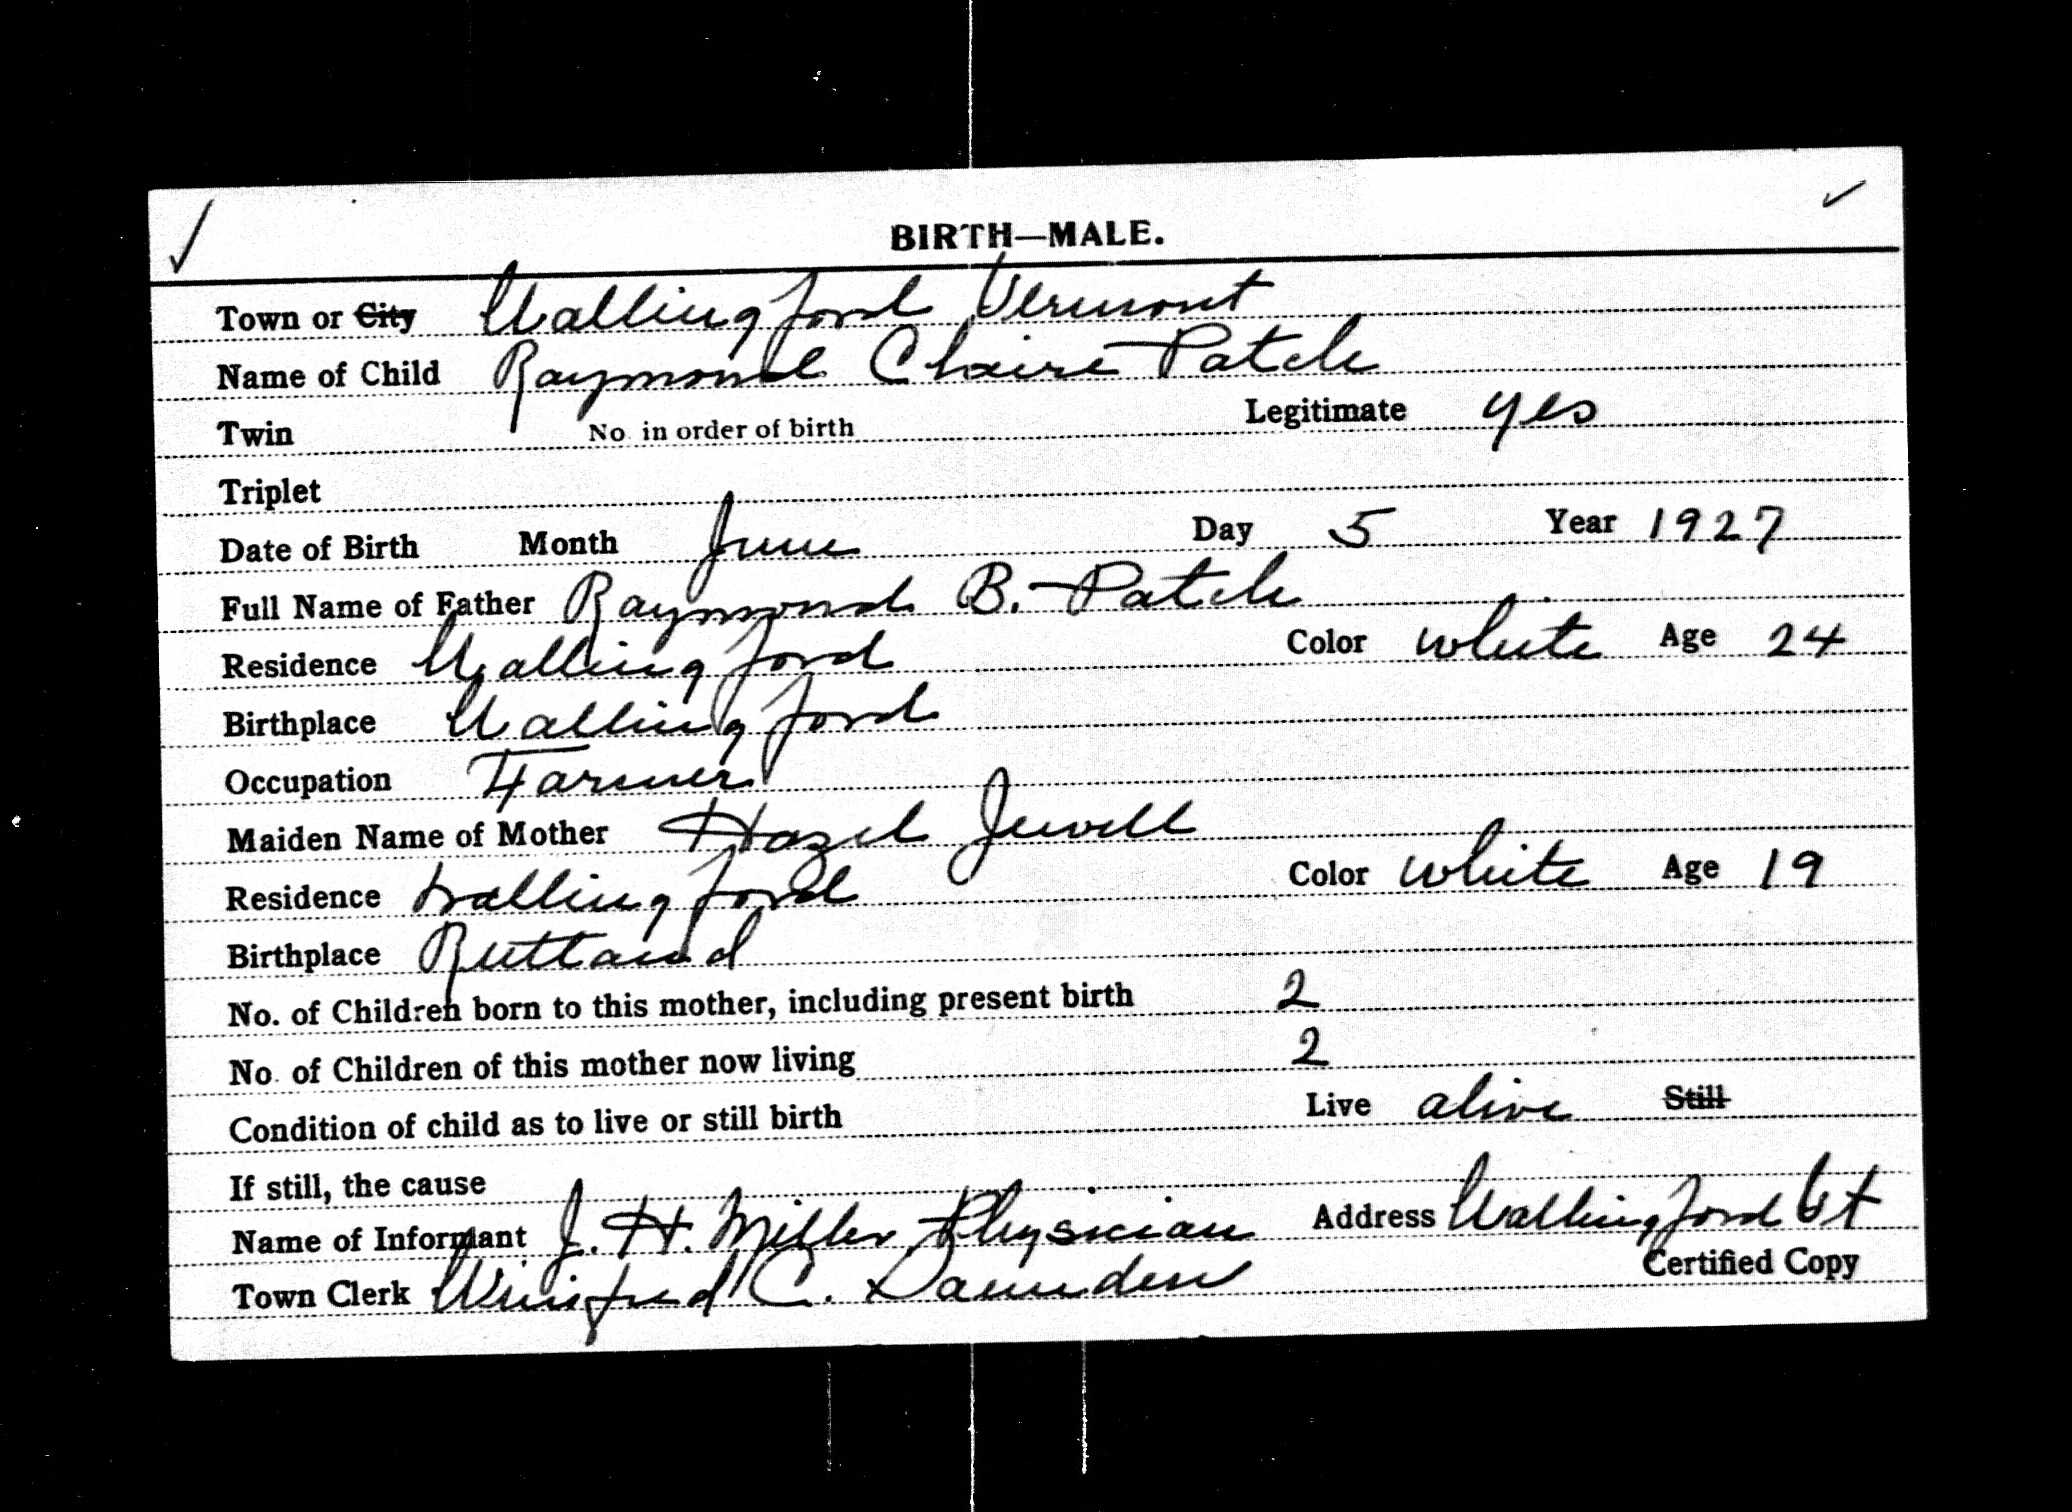 BIRTH—MALE.
Town or City Wallingford Vermont
Name of Child Raymond Claire Patch
Twin No. in order of birth Legitimate yes
Triplet
Date of Birth Month June Day 5 Year 1927
Full Name of Father Raymond B. Patch
Residence Wallingford Color white Age 24
Birthplace Wallingford
Occupation Farmer
Maiden Name of Mother Hazel Jewell
Residence Wallingford Color white Age 19
Birthplace Rutland
No. of Children born to this mother, including present birth 2
No. of Children of this mother now living 2
Condition of child as to live or still birth Live alive Still
If still, the cause
Name of Informant J. H. Miller Physician Address Wallingford Vt
Certified Copy
Town Clerk Winifred C.